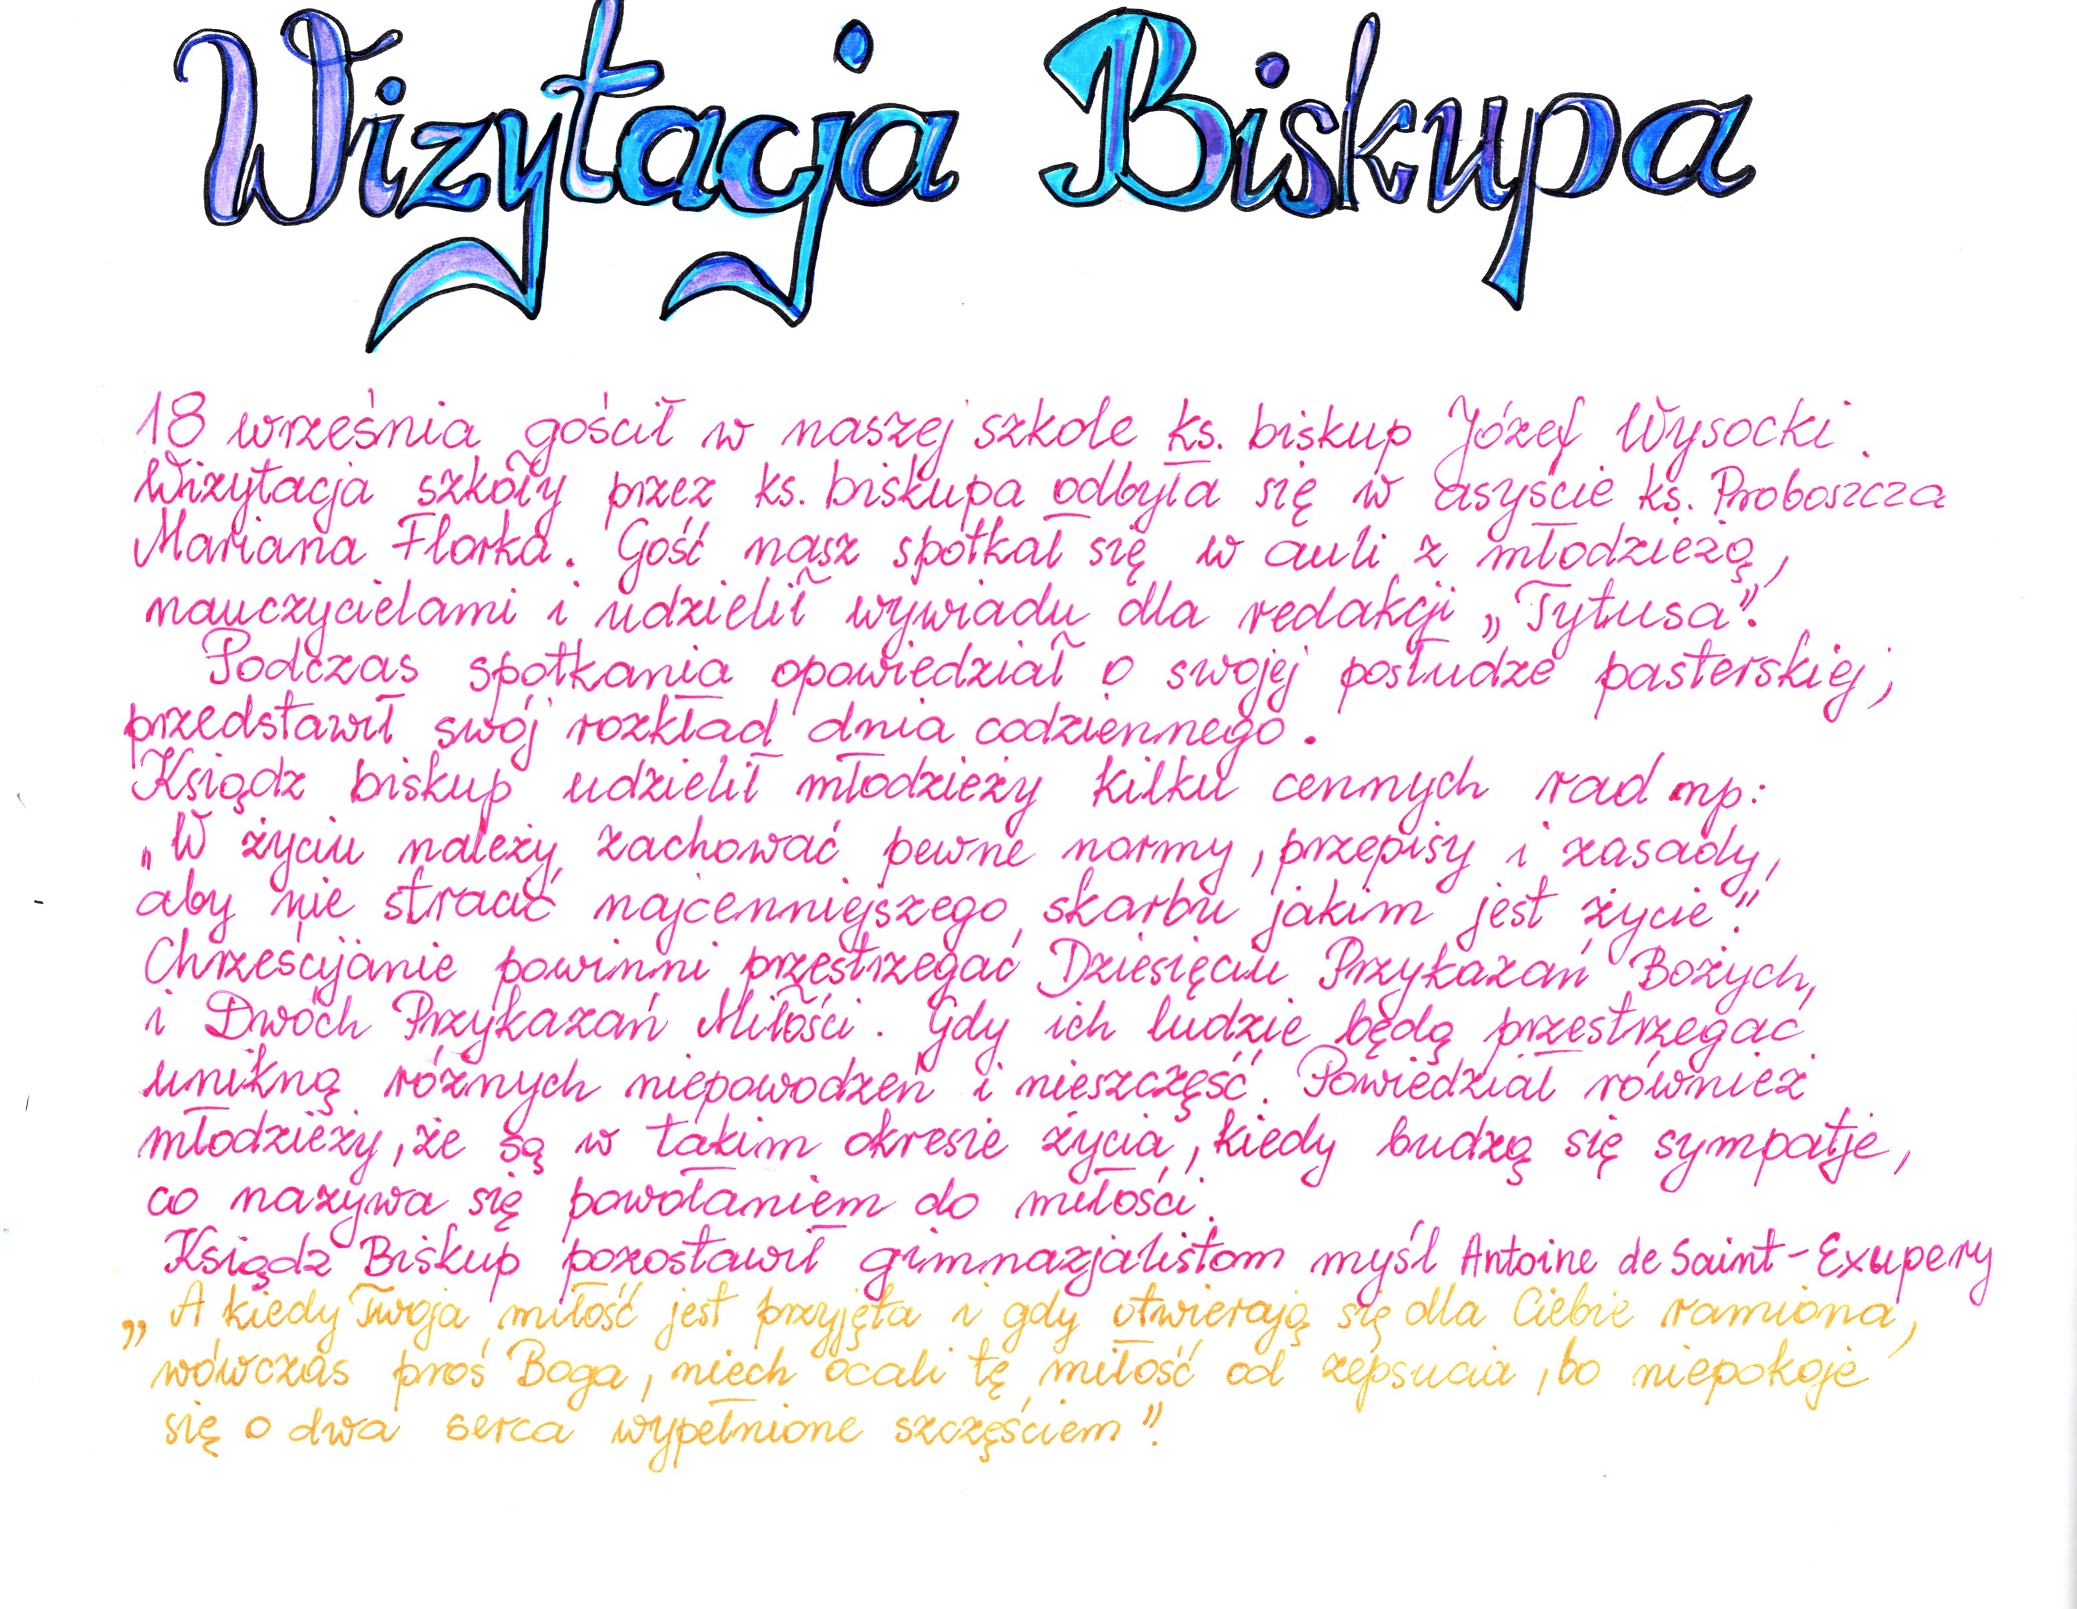 Wizytacja Biskupa
18 września gościł w naszej szkole ks. biskup Józef Wysocki.
Wizytacja szkoły przez ks. biskupa odbyła się w asyście ks. Proboszcza
Mariana Florka. Gość nasz spotkał się w auli z młodzieżą,
nauczycielami i udzielił wywiadu dla redakcji „Tytusa”.
Podczas spotkania opowiedział o swojej posłudze pasterskiej,
przedstawił swój rozkład dnia codziennego.
Ksiądz biskup udzielił młodzieży kilku cennych rad np:
„W życiu należy zachować pewne normy, przepisy i zasady,
aby nie stracić najcenniejszego skarbu jakim jest życie”.
Chrześcijanie powinni przestrzegać Dziesięciu Przykazań Bożych,
i Dwóch Przykazań Miłości. Gdy ich ludzie będą przestrzegać
unikną różnych niepowodzeń i nieszczęść. Powiedział również
młodzieży, że są w takim okresie życia, kiedy budzą się sympatje,
co nazywa się powołaniem do miłości.
Ksiądz Biskup pozostawił gimnazjalistom myśl Antoine de Saint-Exupery
„A kiedy Twoja miłość jest przyjęta i gdy otwierają się dla Ciebie ramiona,
wówczas proś Boga, niech ocali tę miłość od zepsucia, bo niepokoję
się o dwa serca wypełnione szczęściem”.